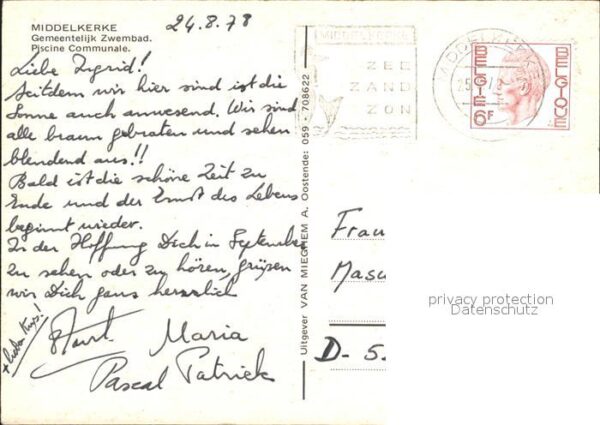 24.8.78
MIDDELKERKE
Gemeentelijk Zwembad.
Piscine Communale.
Liebe Ingrid!
Seitdem wir hier sind ist die
Sonne auch anwesend. Wir sind
alle braun gebraten und sehen
blendend aus!!
Bald ist die schöne Zeit zu
Ende und der Ernst des Lebens
beginnt wieder.
In der Hoffnung Dich in September
zu sehen oder zu hören, grüßen
wir Dich ganz herzlich
Maria
Pascal Patrick
Uitgever VAN MIEGHEM A. Oostende: 059 - 708622
MIDDELKERKE
ZEE
ZAND
ZON
MIDDELKERKE
BELGIE 6F
BELGIQUE
Frau
Masu
D-5.
privacy protection
Datenschutz